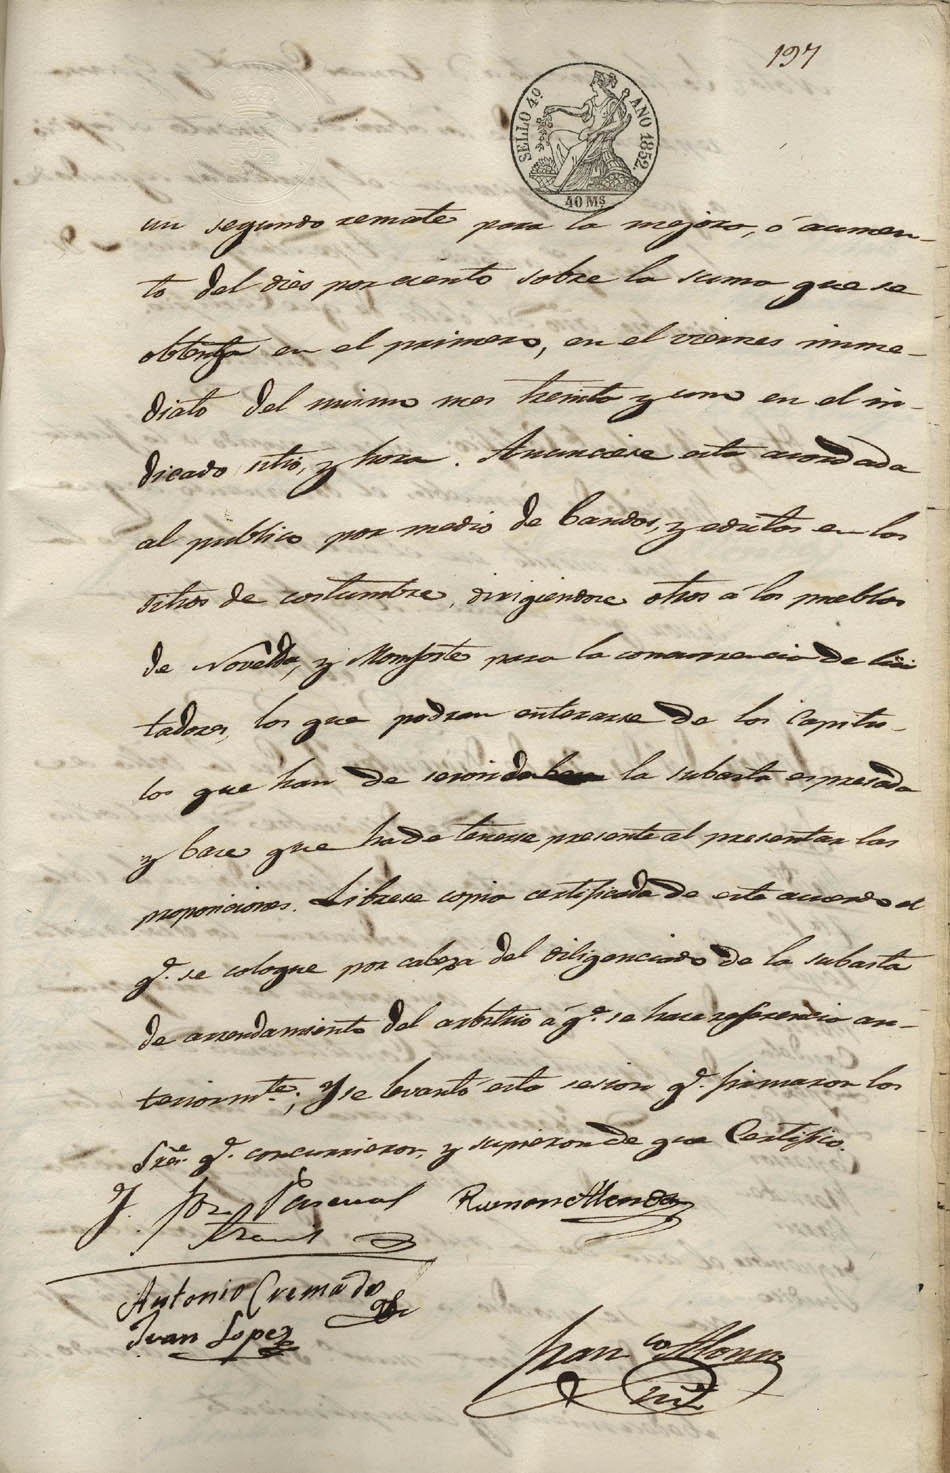 197
SELLO 4º AÑO 1852.
40 Ms
un segundo remate para la mejora, ó aumen-
to del dies por ciento sobre la suma que se
obtenga en el primero, en el viernes inme-
diato del mismo mes treinta y uno en el in-
dicado sitio, y hora. Anunciese esta acordada
al publico por medio de bandos, y edictos en los
sitios de costumbre, dirigiendose otros á los pueblos
de Novelda, y Monforte para la concurrencia de lici
tadores, los que podran enterarse de los Capitu-
los que han de la subasta espresada
y base que ha de tenerse presente al presentar las
proposiciones. Librese copia certificada de este acuerdo el
qe. se coloque por cabeza del diligenciado de la subasta
de arrendamiento del arbitrio á qe. se hace referencia an-
teriormte.; Y se levantó esta sesion qe. firmaron los
Sres. qe. concurrieron, y supieron de que Certifico.
J. Pascual Ramon
Antonio Cremades
Juan Lopez
Franco Alonso